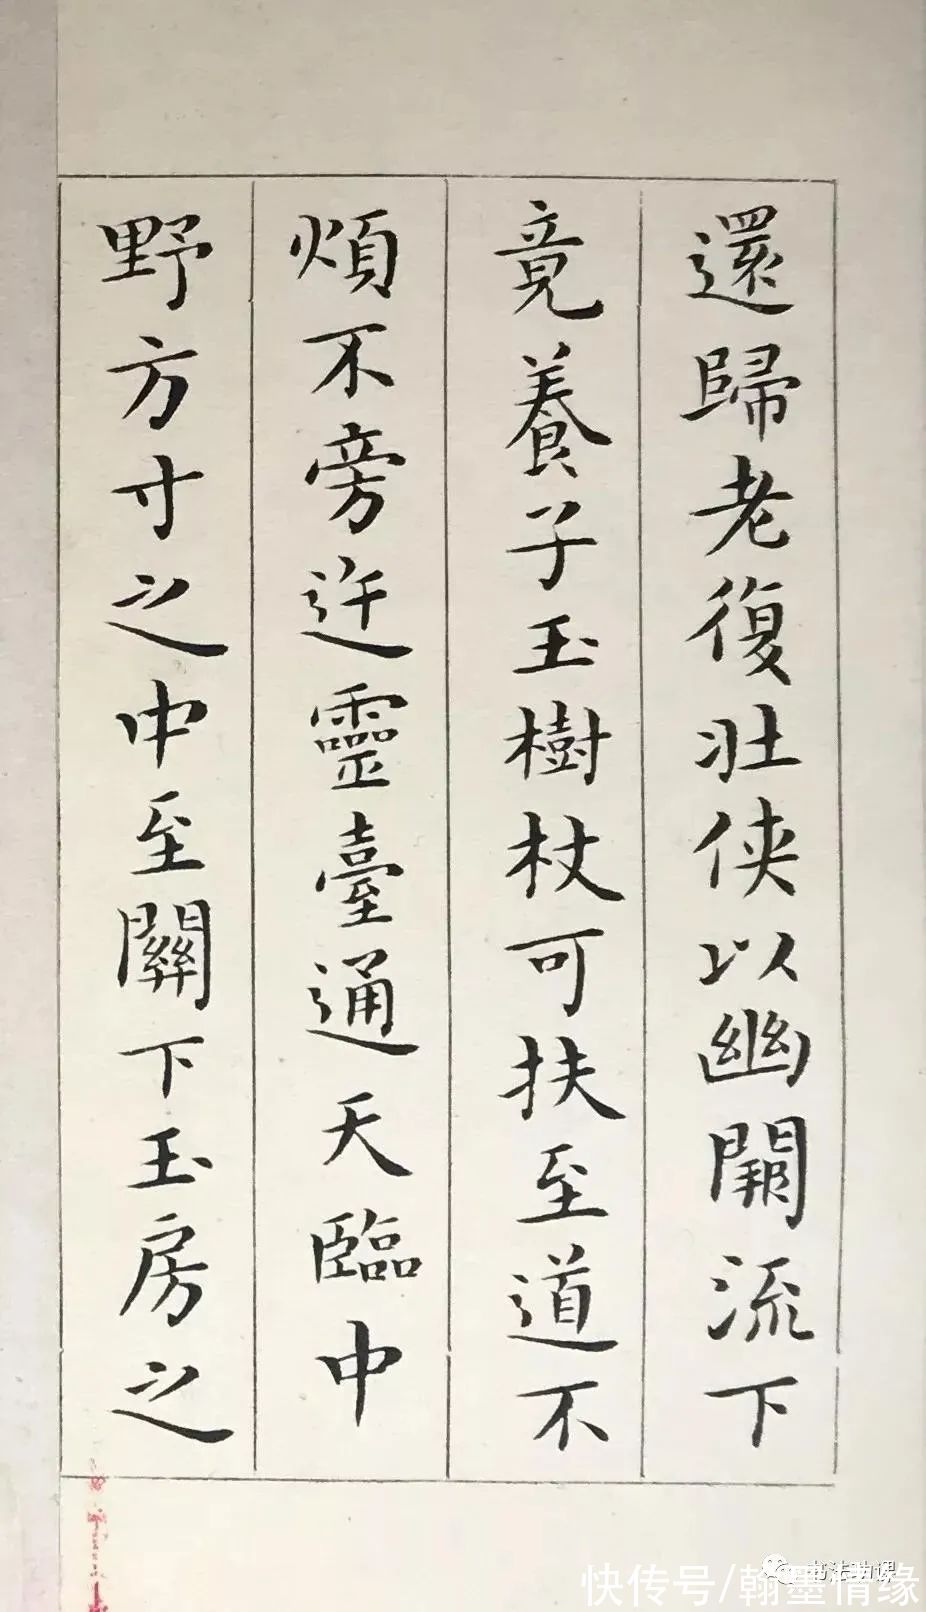 還歸老復壯俠以幽闕流下
竟養子玉樹杖可扶至道不
煩不旁迕靈臺通天臨中
野方寸之中至關下玉房之
快传号/翰墨情缘